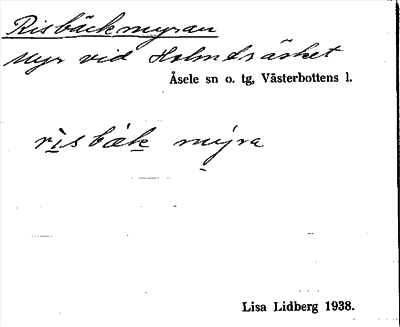 Risbäckmyran
Myr vid Holmträsket
Åsele sn o. tg, Västerbottens l.
rìsbäk mýra
Lisa Lidberg 1938.